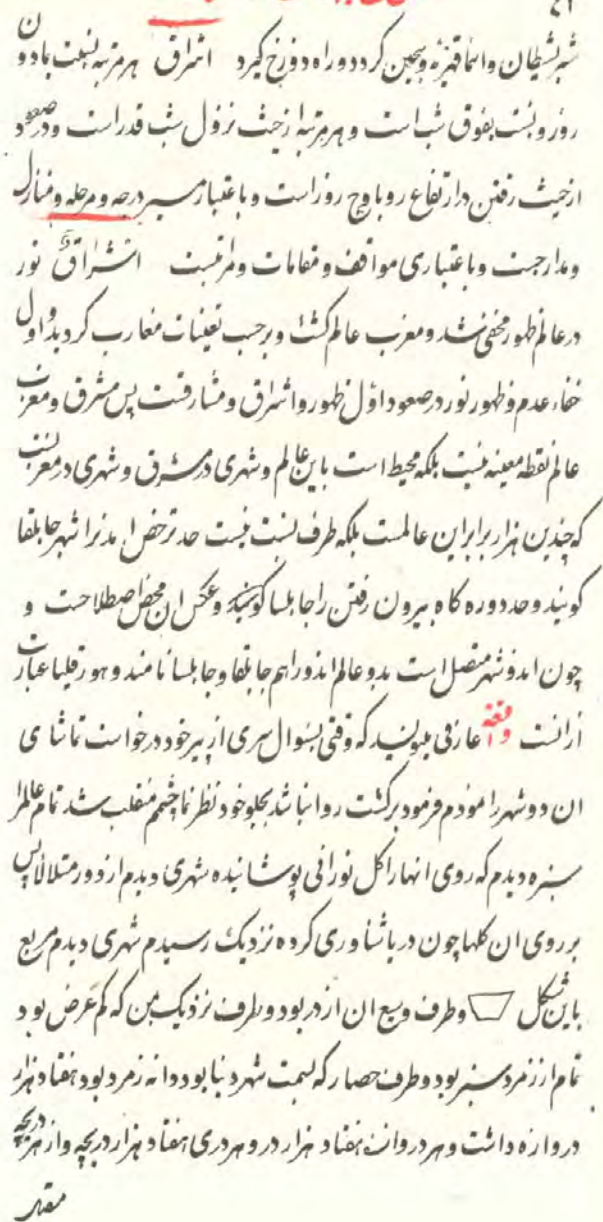 ۴۱
شبر شیطان و انما قهره و سجین کردد و راه دوزخ کیرد اشراق هر مرتبه نسبت بمادون
روز و نسبت بفوق شب است و هر مرتبه از حیث نزول شب قدر است و در صعود
از حیث رفتن در ارتفاع رو باوج روز است و باعتبار مسیر درجه و مرحله و منازل
و مدارجست و باعتباری مواقف و مقامات و مراتبست اشراق نور
در عالم ظهور مخفی شد و مغرب عالم کشت و برحسب تعینات مغارب کردید و اول
خفاء عدم و ظهور نور در صعود اول ظهور و اشراق و مشارقست پس مشرق و مغرب
عالم نقطه معینه نیست بلکه محیط است باین عالم و شهری در مشرق و شهری در مغربست
که چندین هزار برابر این عالمست بلکه طرف نسبت نیست حد ترخص را شهر جابلقا
کویند و حد دوره کاه بیرون رفتن را جابلسا کویند و عکس ان محض اصطلاحست و
چون این دو شهر متصل است بدو عالم اندو را هم جابلقا و جابلسا نامند و هورقلیا عبارت
ازانست واقعه عارفی میکوید که وقتی بسوال سری از پیر خود درخواست تماشای
ان دو شهر را نمودم فرمود برکشت روا نباشد بجلو خود نظر نما چشمم منقلب شد تمام عالم را
سبزه دیدم که روی انها را کل نورانی پوشانیده شهری دیدم از دور متلالا پس
بر روی ان کلها چون دریا شناوری کرده نزدیک رسیدم شهری دیدم مربع
باین شکل و طرف وسیع ان از در بود و طرف نزدیک بمن که کم عرض بود
تمام از زمرد سبز بود و طرف حصار که بسمت شهر دنیا بود دانه زمرد بود هفتاد هزار
دروازه داشت و هر دروازه هفتاد هزار در و هر دری هفتاد هزار دریچه و از هر دریچه